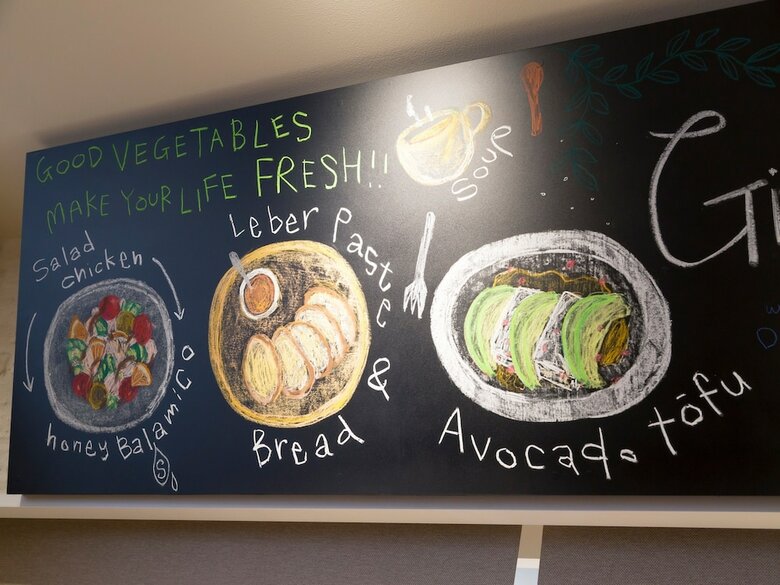 GOOD VEGETABLES
MAKE YOUR LIFE FRESH!!
Soup
Salad
chicken
honey Balamico
Leber Paste
&
Bread
Avocado tōfu
Gi